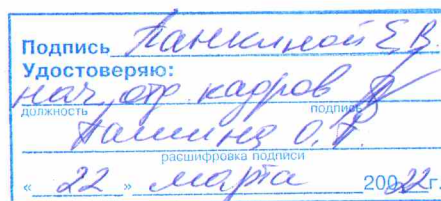 Подпись Панкиной Е.В.
Удостоверяю:
нач. отд. кадров
должность подпись
Пашина О.
расшифровка подписи
« 22 » марта 20022г.